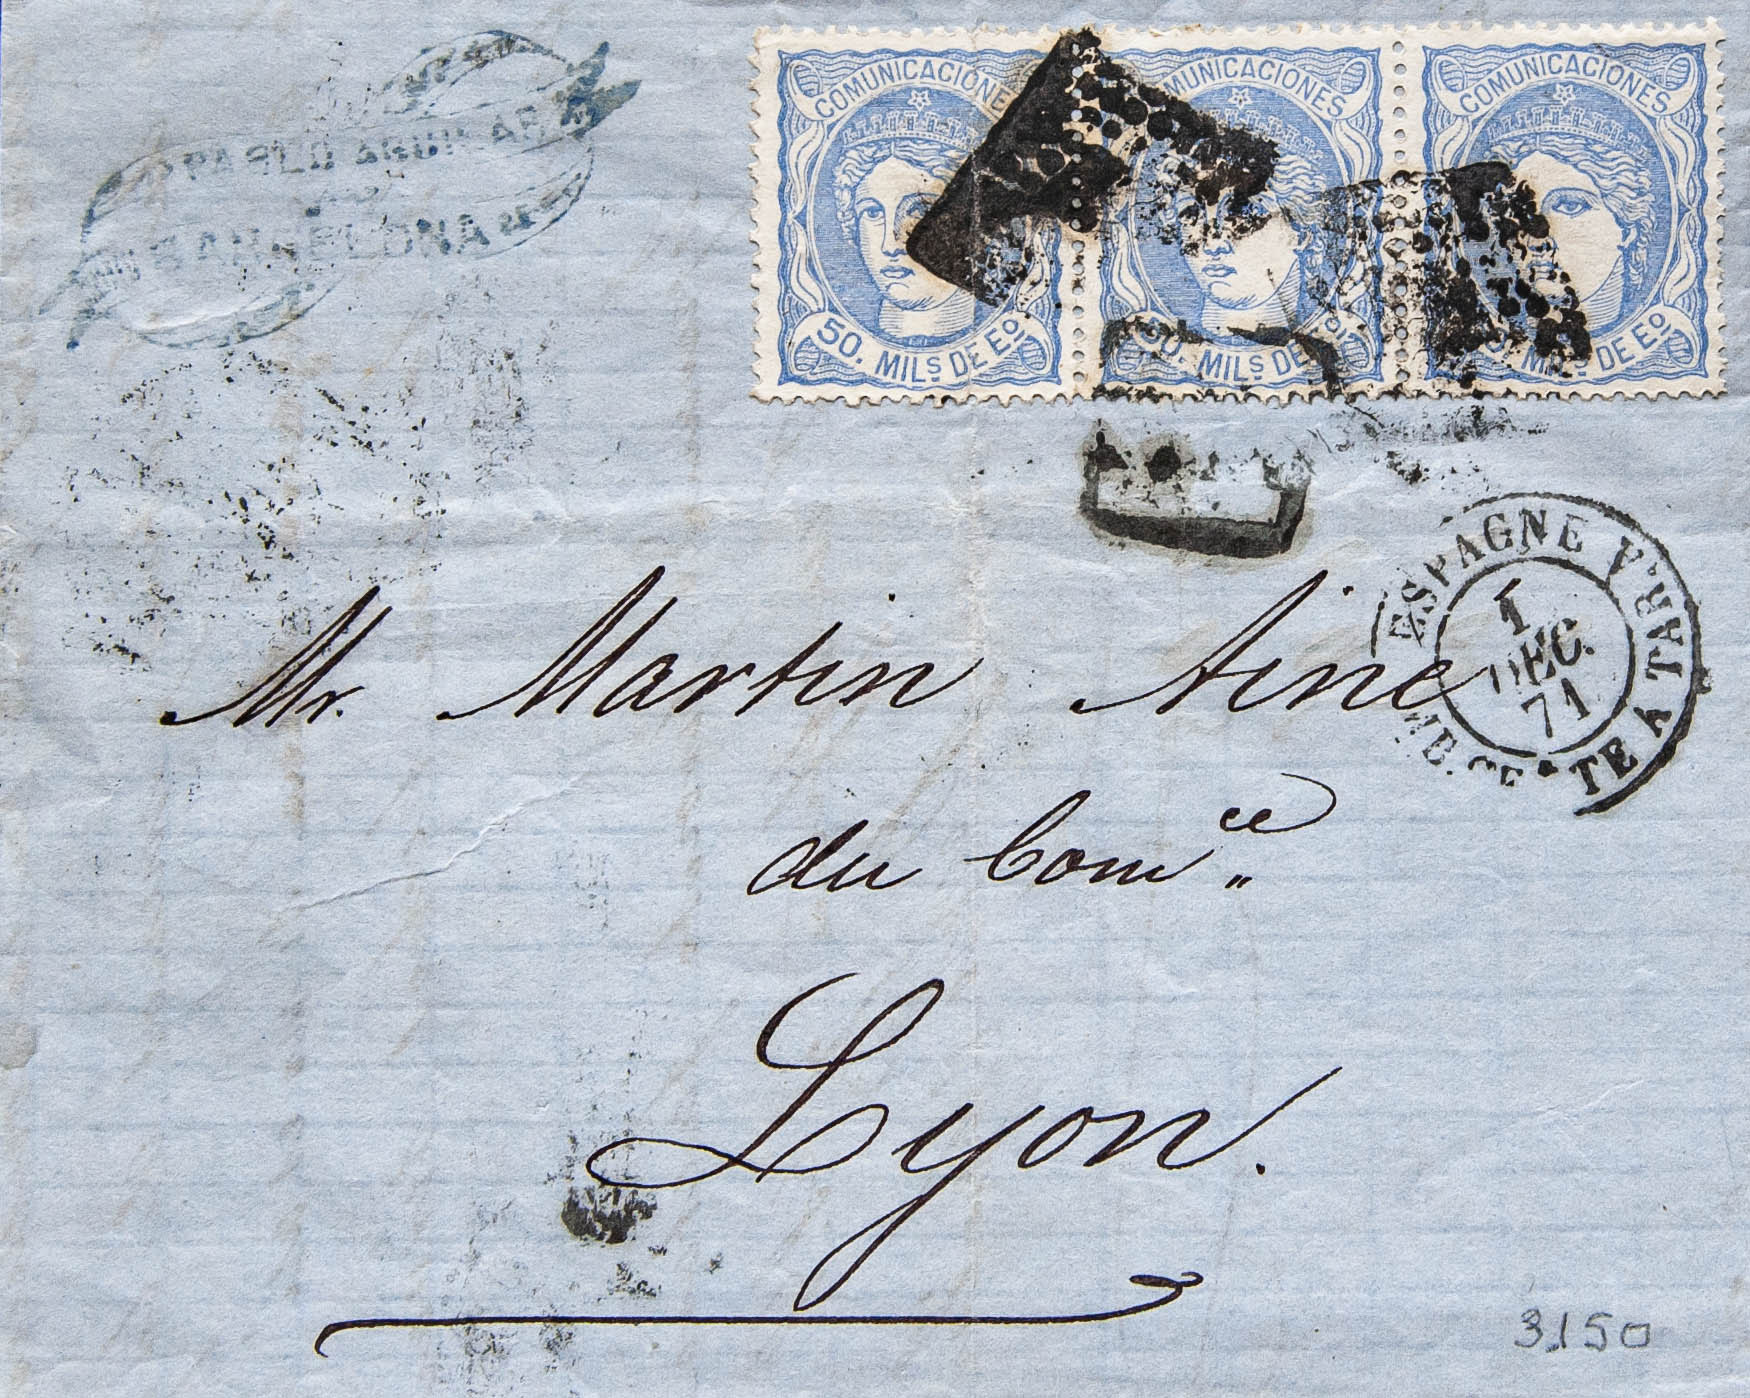 BARCELONA
COMUNICACIONES
50. MILS DE Eo
COMUNICACIONES
50. MILS DE Eo
COMUNICACIONES
50. MILS DE Eo
ESPAGNE
TE A TAR.A
1
DEC.
71
Mr. Martin Ainé
du Comce
Lyon.
3,150